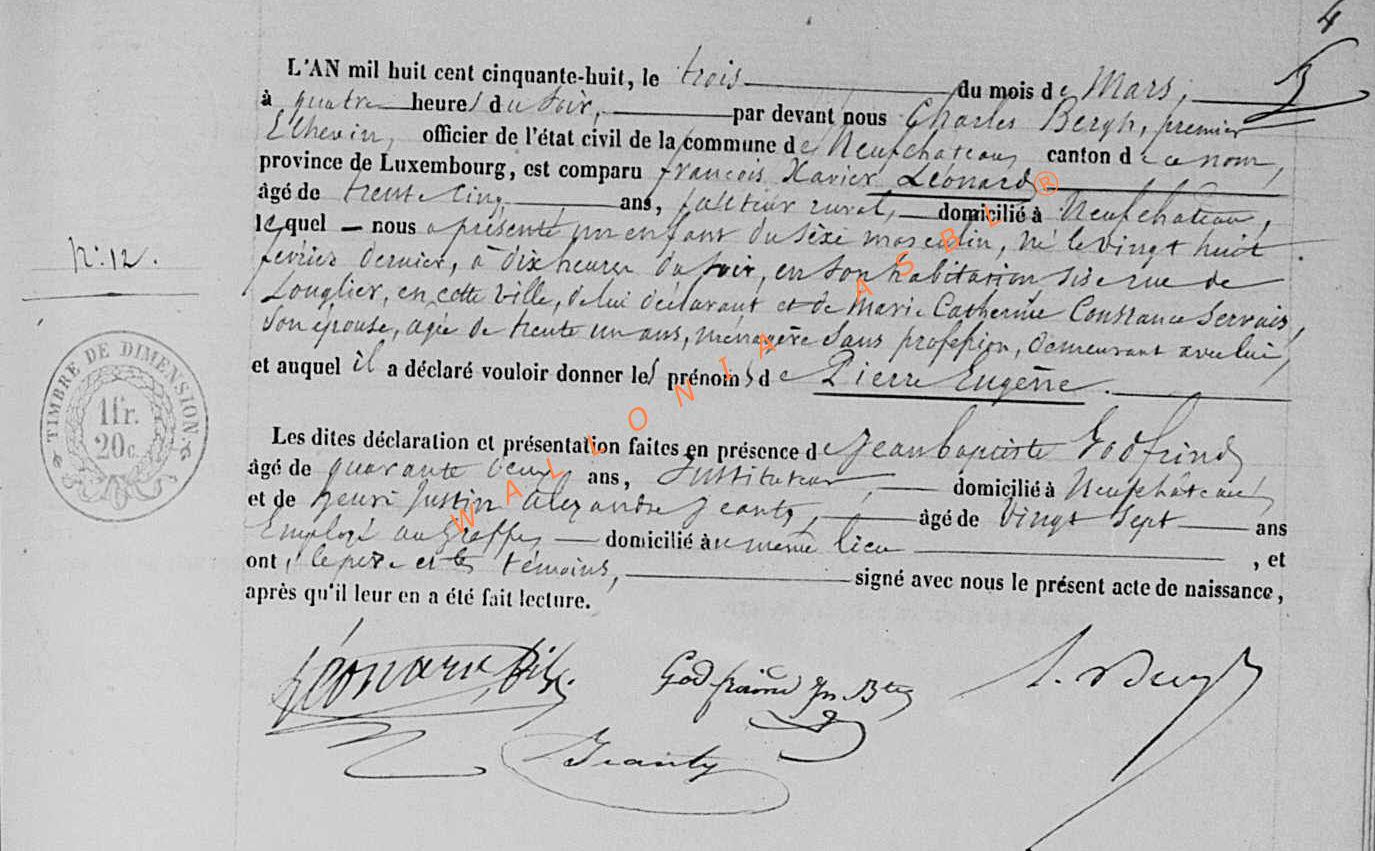 4
5
L'AN mil huit cent cinquante-huit, le trois du mois de Mars,
à quatre heures du soir, par devant nous Charles Bergh, premier
Echevin, officier de l'état civil de la commune de Neufchateau, canton de ce nom,
province de Luxembourg, est comparu françois Xavier Léonard
âgé de trente cinq ans, facteur rural, domicilié à Neufchâteau,
lequel — nous a présenté un enfant du sèxe masculin, né le vingt huit
février dernier, à dix heures du soir, en son habitation sise rue de
Longlier, en cette ville, de lui déclarant et de Marie Catherine Constance Servais,
son épouse, agée de trente un ans, ménagère sans profession, demeurant avec lui,
et auquel il a déclaré vouloir donner les prénoms de Pierre Eugène.
Les dites déclaration et présentation faites en présence de Jean baptiste Godfrind
âgé de quarante deux ans, Instituteur, domicilié à Neufchâteau,
et de henri Justin alexandre Jeanty, âgé de vingt sept ans
Employé au Greffe, domicilié au même lieu, et
ont, le père et les témoins, signé avec nous le présent acte de naissance,
après qu'il leur en a été fait lecture.
N: 12.
TIMBRE DE DIMENSION
1fr.
20c.
WALLONIA ASBL ®
Léonard fils.
Godfraind Jn. Bte
Jeanty